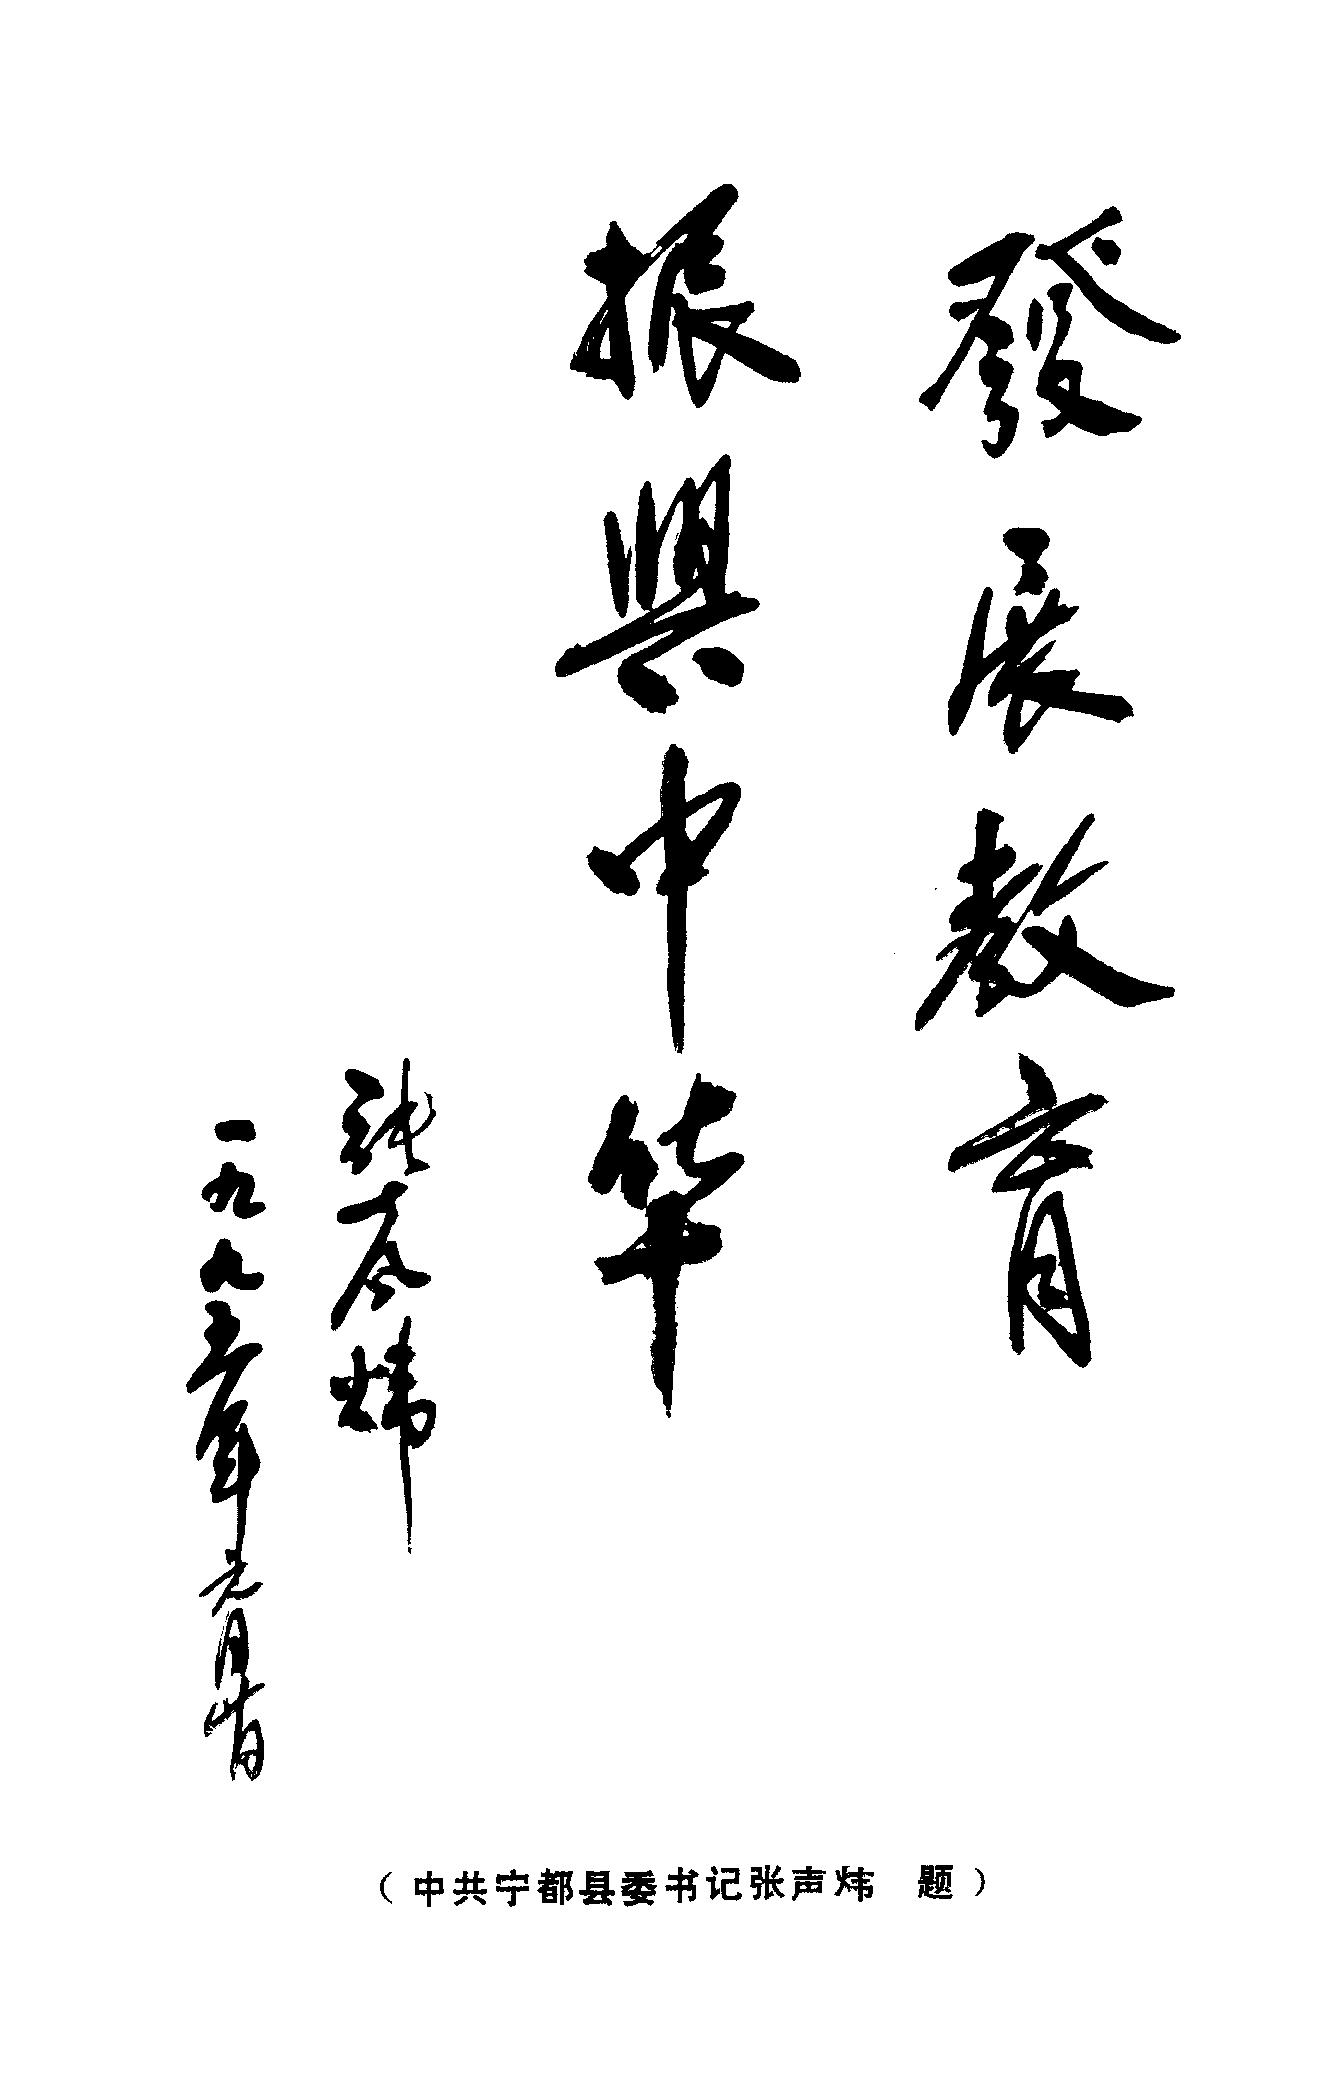 發展教育
振興中华
张声炜
一九九五年元月廿日
（中共宁都县委书记张声炜　题）